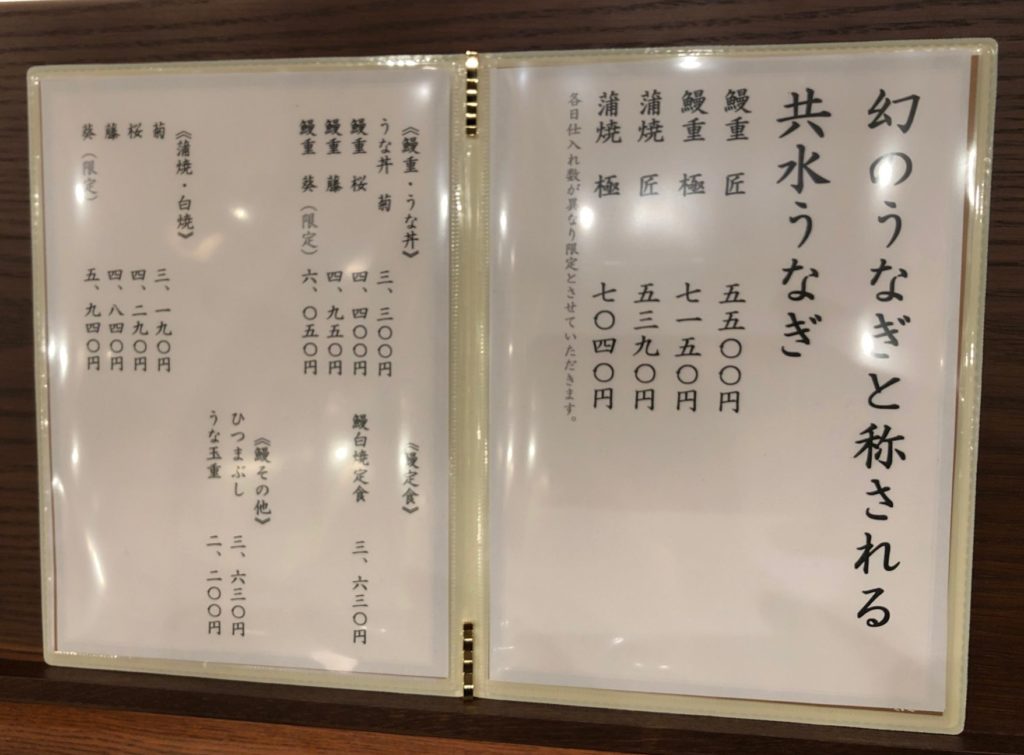 幻のうなぎと称される
共水うなぎ
鰻重 匠 五五〇〇円
鰻重 極 七一五〇円
蒲焼 匠 五三九〇円
蒲焼 極 七〇四〇円
各日仕入れ数が異なり限定とさせていただきます。
《鰻重・うな丼》
うな丼 菊 三、三〇〇円
鰻重 桜 四、四〇〇円
鰻重 藤 四、九五〇円
鰻重 葵(限定) 六、〇五〇円
《鰻定食》
鰻白焼定食 三、六三〇円
《蒲焼・白焼》
菊 三、一九〇円
桜 四、二九〇円
藤 四、八四〇円
葵(限定) 五、九四〇円
《鰻その他》
ひつまぶし 三、六三〇円
うな玉重 二、二〇〇円